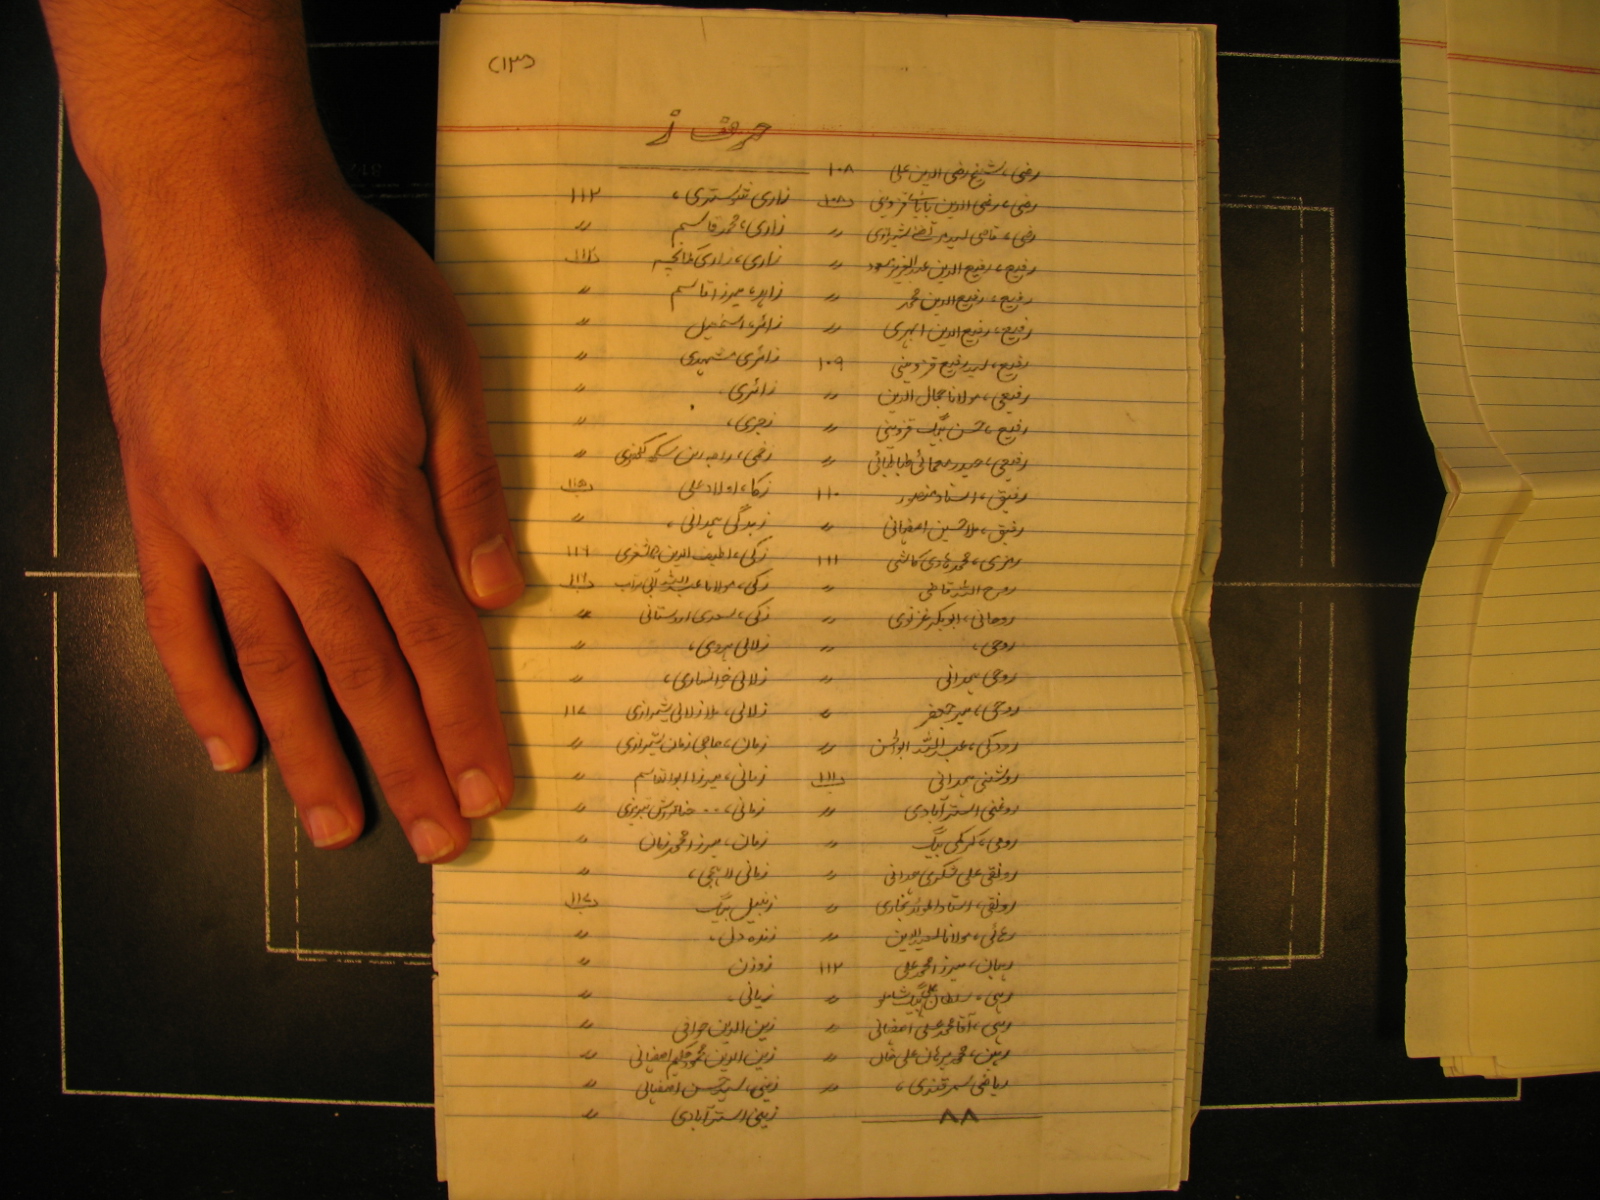 (۱۳)
رضی، شیخ رضی الدین علی ۱۰۸
رضی، رضی الدین بابا قزوینی ۱۰۸ب
رضی، قاضی سید مرتضی شیرازی 〃
رفیع، رفیع الدین عبدالعزیز مسعود 〃
رفیع، رفیع الدین محمد 〃
رفیع، رفیع الدین ابهری 〃
رفیع، سید رفیع قزوینی ۱۰۹
رفیعی، مولانا جمال الدین 〃
رفیع، حسن بیگ قزوینی 〃
رفیعی، حیدر معمائی طباطبائی 〃
رفیق، استاد منصور ۱۱۰
رفیق، ملا حسین اصفهانی 〃
رمزی، محمد هادی کاشی ۱۱۱
روح الله قاضی 〃
روحانی، ابوبکر غزنوی 〃
روحی، 〃
روحی همدانی 〃
روحی، میر جعفر 〃
رودکی، عبدالله ابوالحسن 〃
روشنی همدانی ۱۱۱ب
روغنی استرآبادی 〃
رومی، کرکی بیگ 〃
رونقی علی شکری همدانی 〃
رونقی، استاد بخاری 〃
رهائی، مولانا سعیدالدین 〃
رهبان، میرزا محمد علی ۱۱۲
رهی، سلطان علی بیگ شاملو 〃
رهی، آقا محمد علی اصفهانی 〃
رهین، محمد برهان علی خان 〃
ریاضی سمرقندی، 〃
۸۸
حرف ز
زاری، شوشتری، ۱۱۲
زاری، محمد قاسم 〃
زاری، زاری کمانچه
زاهد، میرزا قاسم 〃
زائر، اسمعیل 〃
زائری مشهدی 〃
زائری، 〃
زجری، 〃
زخمی، لکهنوی 〃
زکا، اولاد علی ۱۱۵ب
زندگی همدانی، 〃
زکی، لطیف الدین کاشغری ۱۱۶
زکی، مولانا عبدالله ۱۱۶ب
زکی، اردستانی 〃
زلالی هروی، 〃
زلالی خوانساری، 〃
زلالی، ملا زلالی شیرازی ۱۱۷
زمان، حاجی زمان شیرازی 〃
زمانی، میرزا ابوالقاسم 〃
زمانی، ۰۰ تبریزی 〃
زمان، میرزا محمد زمان 〃
زمانی لاهیجی، 〃
زنبیل بیگ ۱۱۷ب
زنده دل، 〃
زوزن 〃
زیانی، 〃
زین الدین خوافی 〃
زین الدین محمد حکیم اصفهانی 〃
زینی، سید حسن اصفهانی 〃
زینی استرآبادی 〃